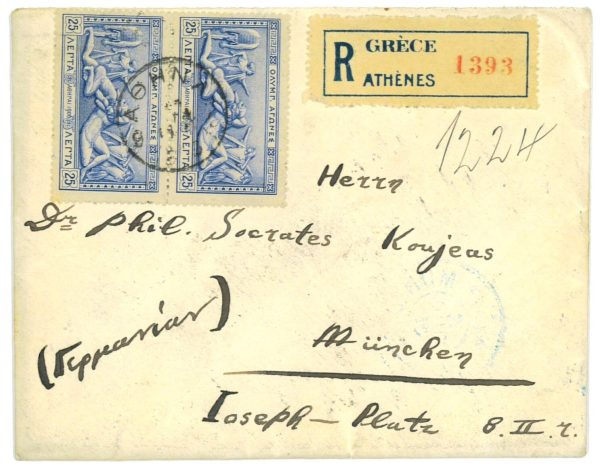 25 ΛΕΠΤΑ
ΟΛΥΜΠ. ΑΓΩΝΕΣ
ΛΕΠΤΑ 25
25 ΛΕΠΤΑ
ΟΛΥΜΠ. ΑΓΩΝΕΣ
ΛΕΠΤΑ 25
ΑΘΗΝΑΙ
R GRÈCE 1393
ATHÈNES
1224
Herrn
Dr Phil. Socrates Koujeas
(Γερμανίαν)
München
Ioseph-Platz 8.II.r.